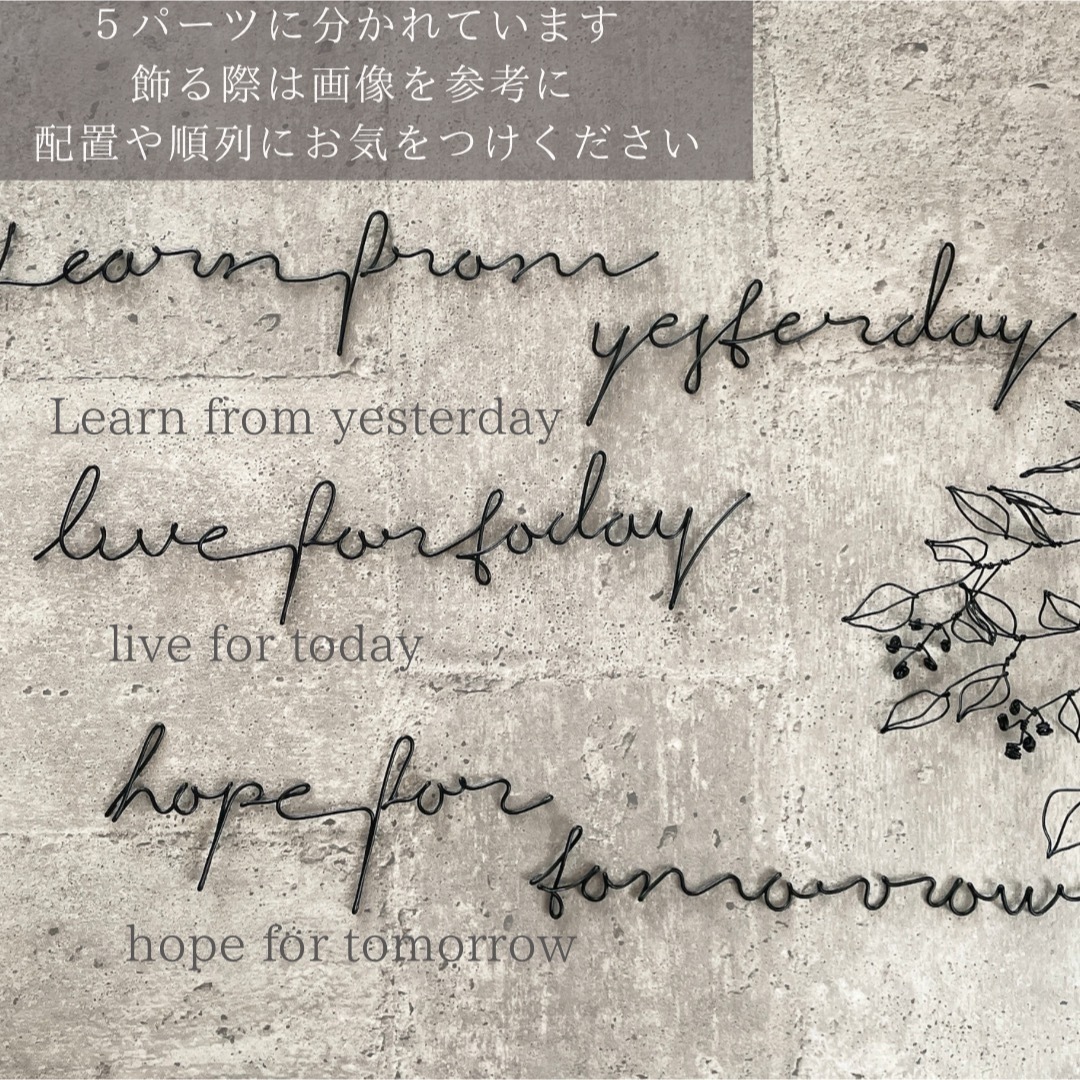 ５パーツに分かれています
飾る際は画像を参考に
配置や順列にお気をつけください
Learn from
yesterday
Learn from yesterday
live for today
live for today
hope for
tomorrow
hope for tomorrow